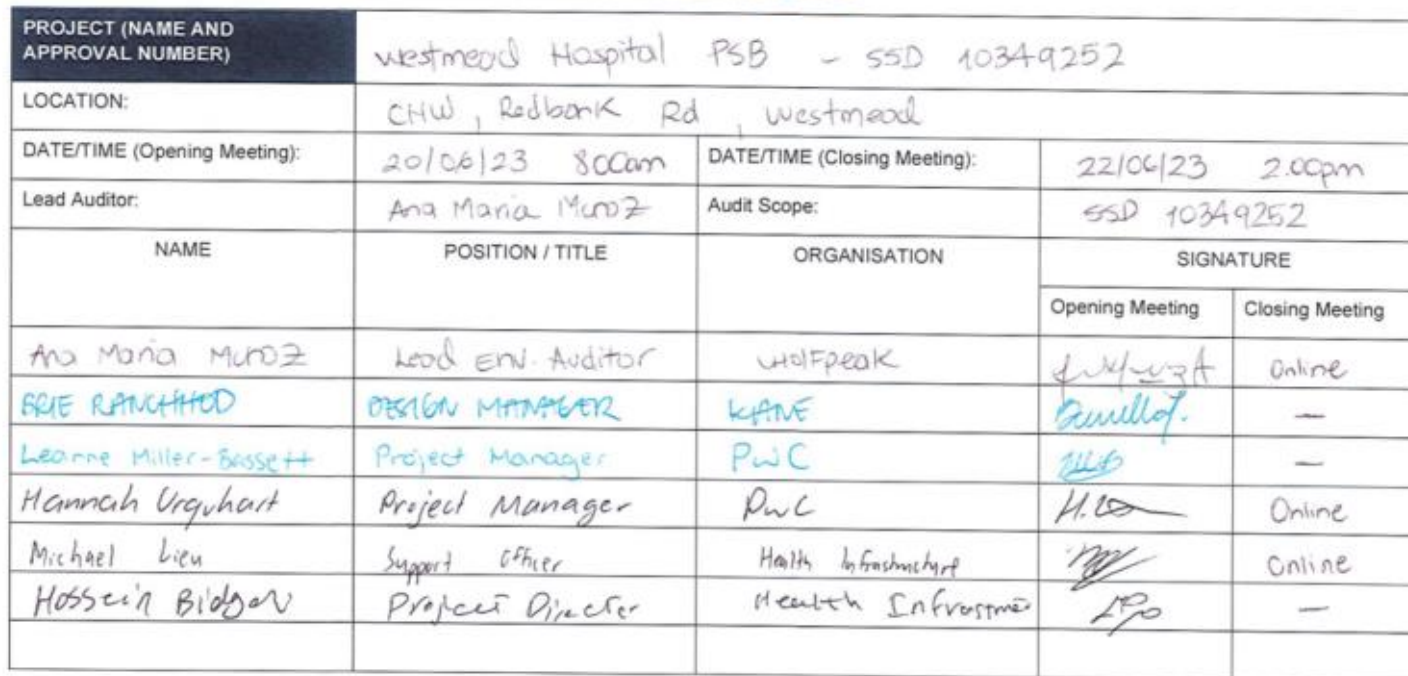 PROJECT (NAME AND APPROVAL NUMBER) Westmead Hospital PSB - SSD 10349252
LOCATION: CHW, Redbank Rd, Westmead
DATE/TIME (Opening Meeting): 20/06/23 8:00am DATE/TIME (Closing Meeting): 22/06/23 2.00pm
Lead Auditor: Ana Maria Munoz Audit Scope: SSD 10349252
NAME POSITION / TITLE ORGANISATION SIGNATURE
Opening Meeting Closing Meeting
Ana Maria Munoz Lead Env. Auditor Wolfpeak Online
BRIE RANCHHOD DESIGN MANAGER KANE —
Leanne Miller-Bassett Project Manager PwC —
Hannah Urquhart Project Manager PwC Online
Michael Lieu Support Officer Health Infrastructure Online
Hossein Project Director Health —